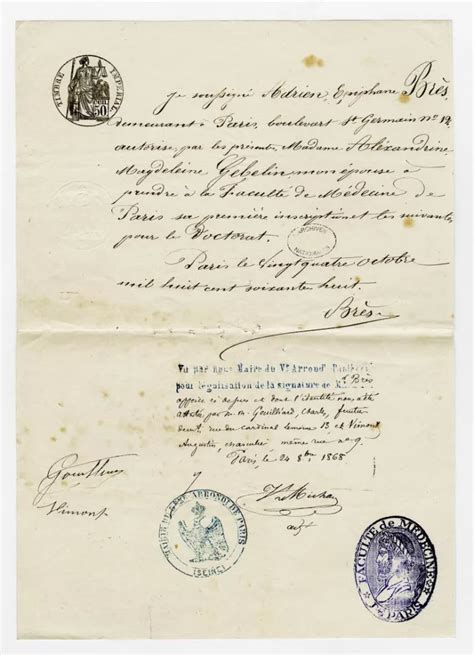 TIMBRE IMPERIAL
50
je soussigné Adrien, Epiphane Brès,
demeurant à Paris, boulevart St Germain no 12
autorise, par les présentes, Madame Alexandrine
Magdeleine Gebelin mon épouse à
prendre à la Faculté de Médecine de
Paris sa première inscription et les suivantes
pour le Doctorat.
ARCHIVES NATIONALES
Paris le vingt quatre octobre
mil huit cent soixante huit.
Brès
Vu par nous Maire du Ve Arrondt
pour légalisation de la signature de M.
Brès
apposée ci dessus et dont l'identité nous a été
attestée par m.m. Gouilliard, Charles, fruitier
demt rue du cardinal Lemoine 13 et Vimont
Augustin, même rue no 9.
Paris, le 24 8bre 1868
Vimont
MAIRIE DU 5EME ARRONDT DE PARIS
(SEINE)
FACULTÉ de MÉDECINE
PARIS